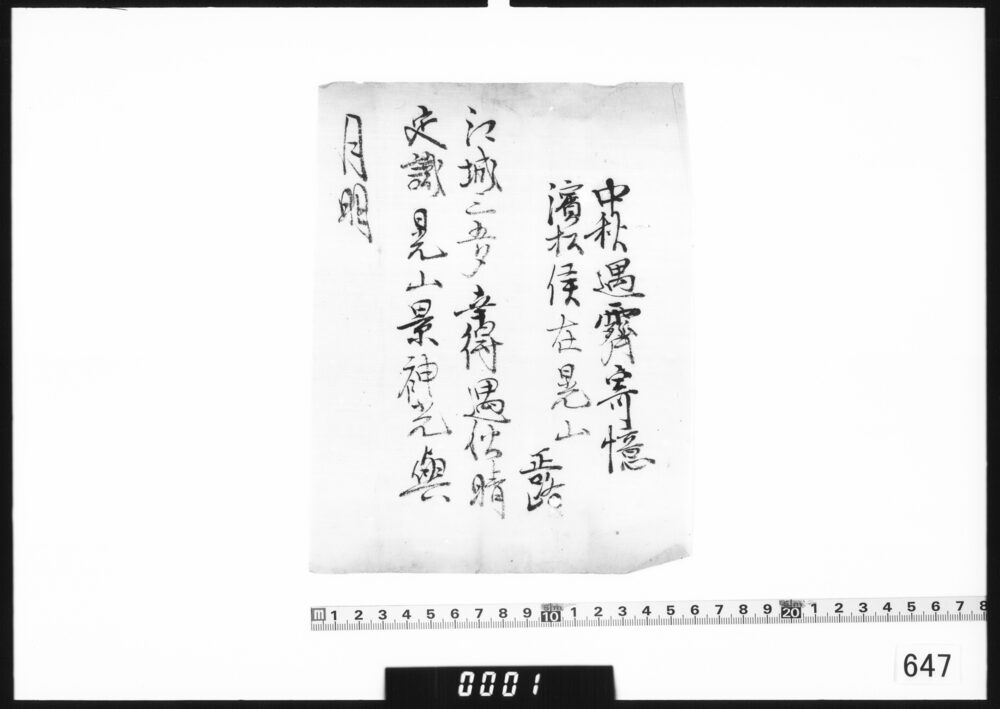 中秋遇霽寄憶
濱松侯在晃山
正路
江城三五夕幸得遇秋晴
定識晃山景神光與
月明
m 1 2 3 4 5 6 7 8 9 10 1 2 3 4 5 6 7 8 9 20 1 2 3 4 5 6 7 8
647
0001